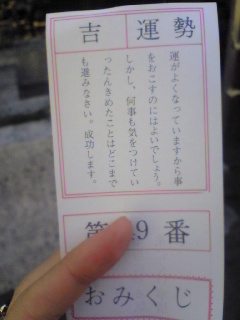 運勢
吉
運がよくなっていますから事
をおこすのにはよいでしょう。
しかし、何事も気をつけてい
ったんきめたことはどこまで
も進みなさい。成功します。
第 19 番
おみくじ